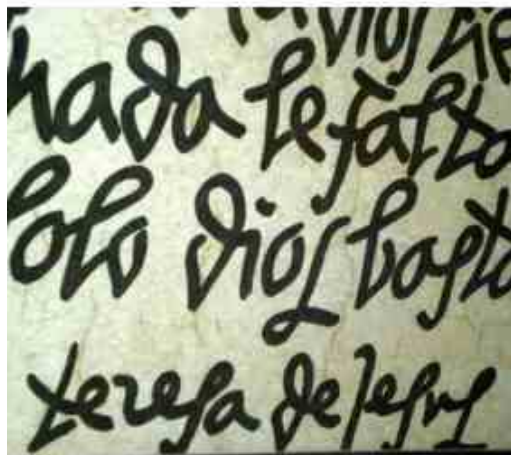 dios tie
nada le falta
solo dios basta
teresa de jesus